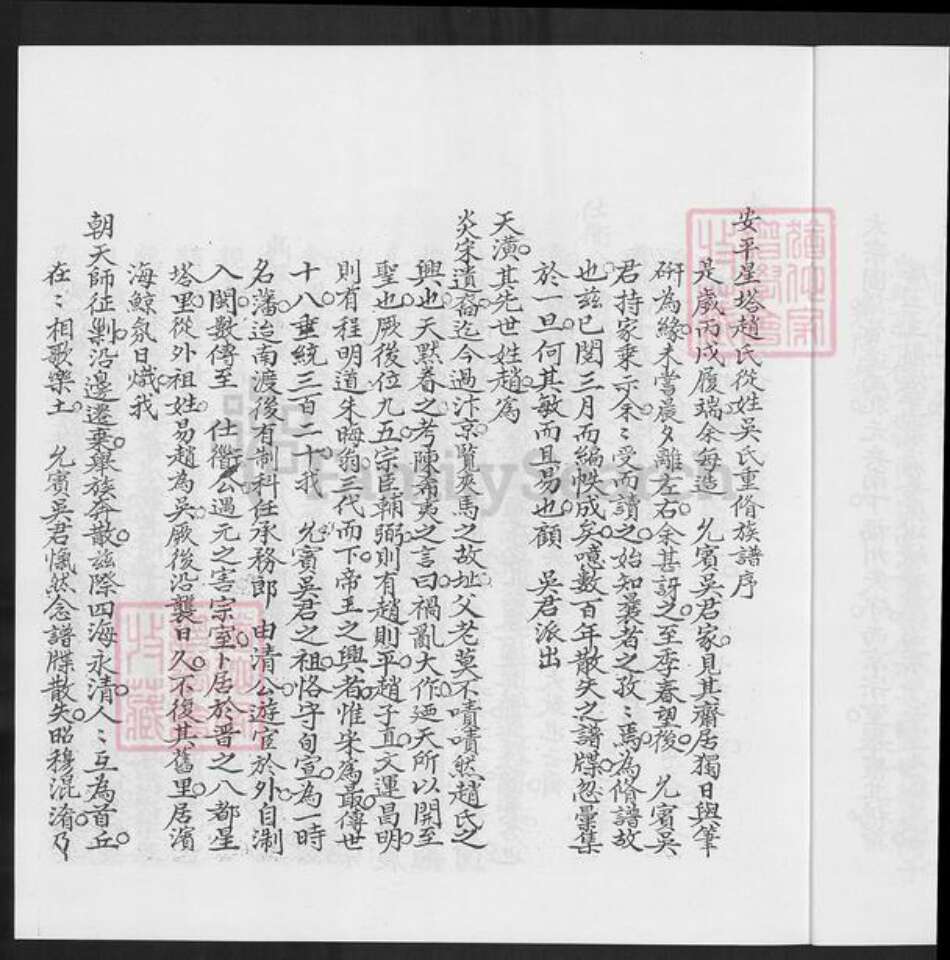 安平星塔趙氏從姓吳氏重脩族譜序
是歲丙戌履端余每造 允賓吳君家見其齋居獨日與筆
硏為緣未嘗晨夕離左右余甚訝之至季春望後 允賓吳
君持家乗示余〻受而讀之始知曩者之孜〻焉為脩譜故
也茲已閱三月而編帙成矣噫數百年散失之譜牒忽彙集
於一旦何其敏而且易也顧 吳君派出
天潢其先世姓趙為
炎宋遺裔迄今過汴京覽夾馬之故址父老莫不嘖嘖然趙氏之
興也天默眷之考陳希夷之言曰禍亂大作廼天所以開至
聖也厥後位九五宗臣輔弼則有趙則平趙子直文運昌明
則有程明道朱晦翁三代而下帝王之興者惟宋為最傳世
十八垂統三百二十我 允賓吳君之祖恪守旬宣為一時
名藩迨南渡後有制科任承務郎 由清公遊宦於外自淛
入閩數傳至 仕衢公遇元之害宗室卜居於晋之八都星
塔里從外祖姓易趙為吳厥後沿襲日久不復其舊里居濱
海鯨氛日熾我
朝天師征剿沿邊遷棄舉族奔散茲際四海永清人〻互為首丘
在〻相歌樂土 允賓吳君慨然念譜牒散失昭穆混淆乃
FamilySearch